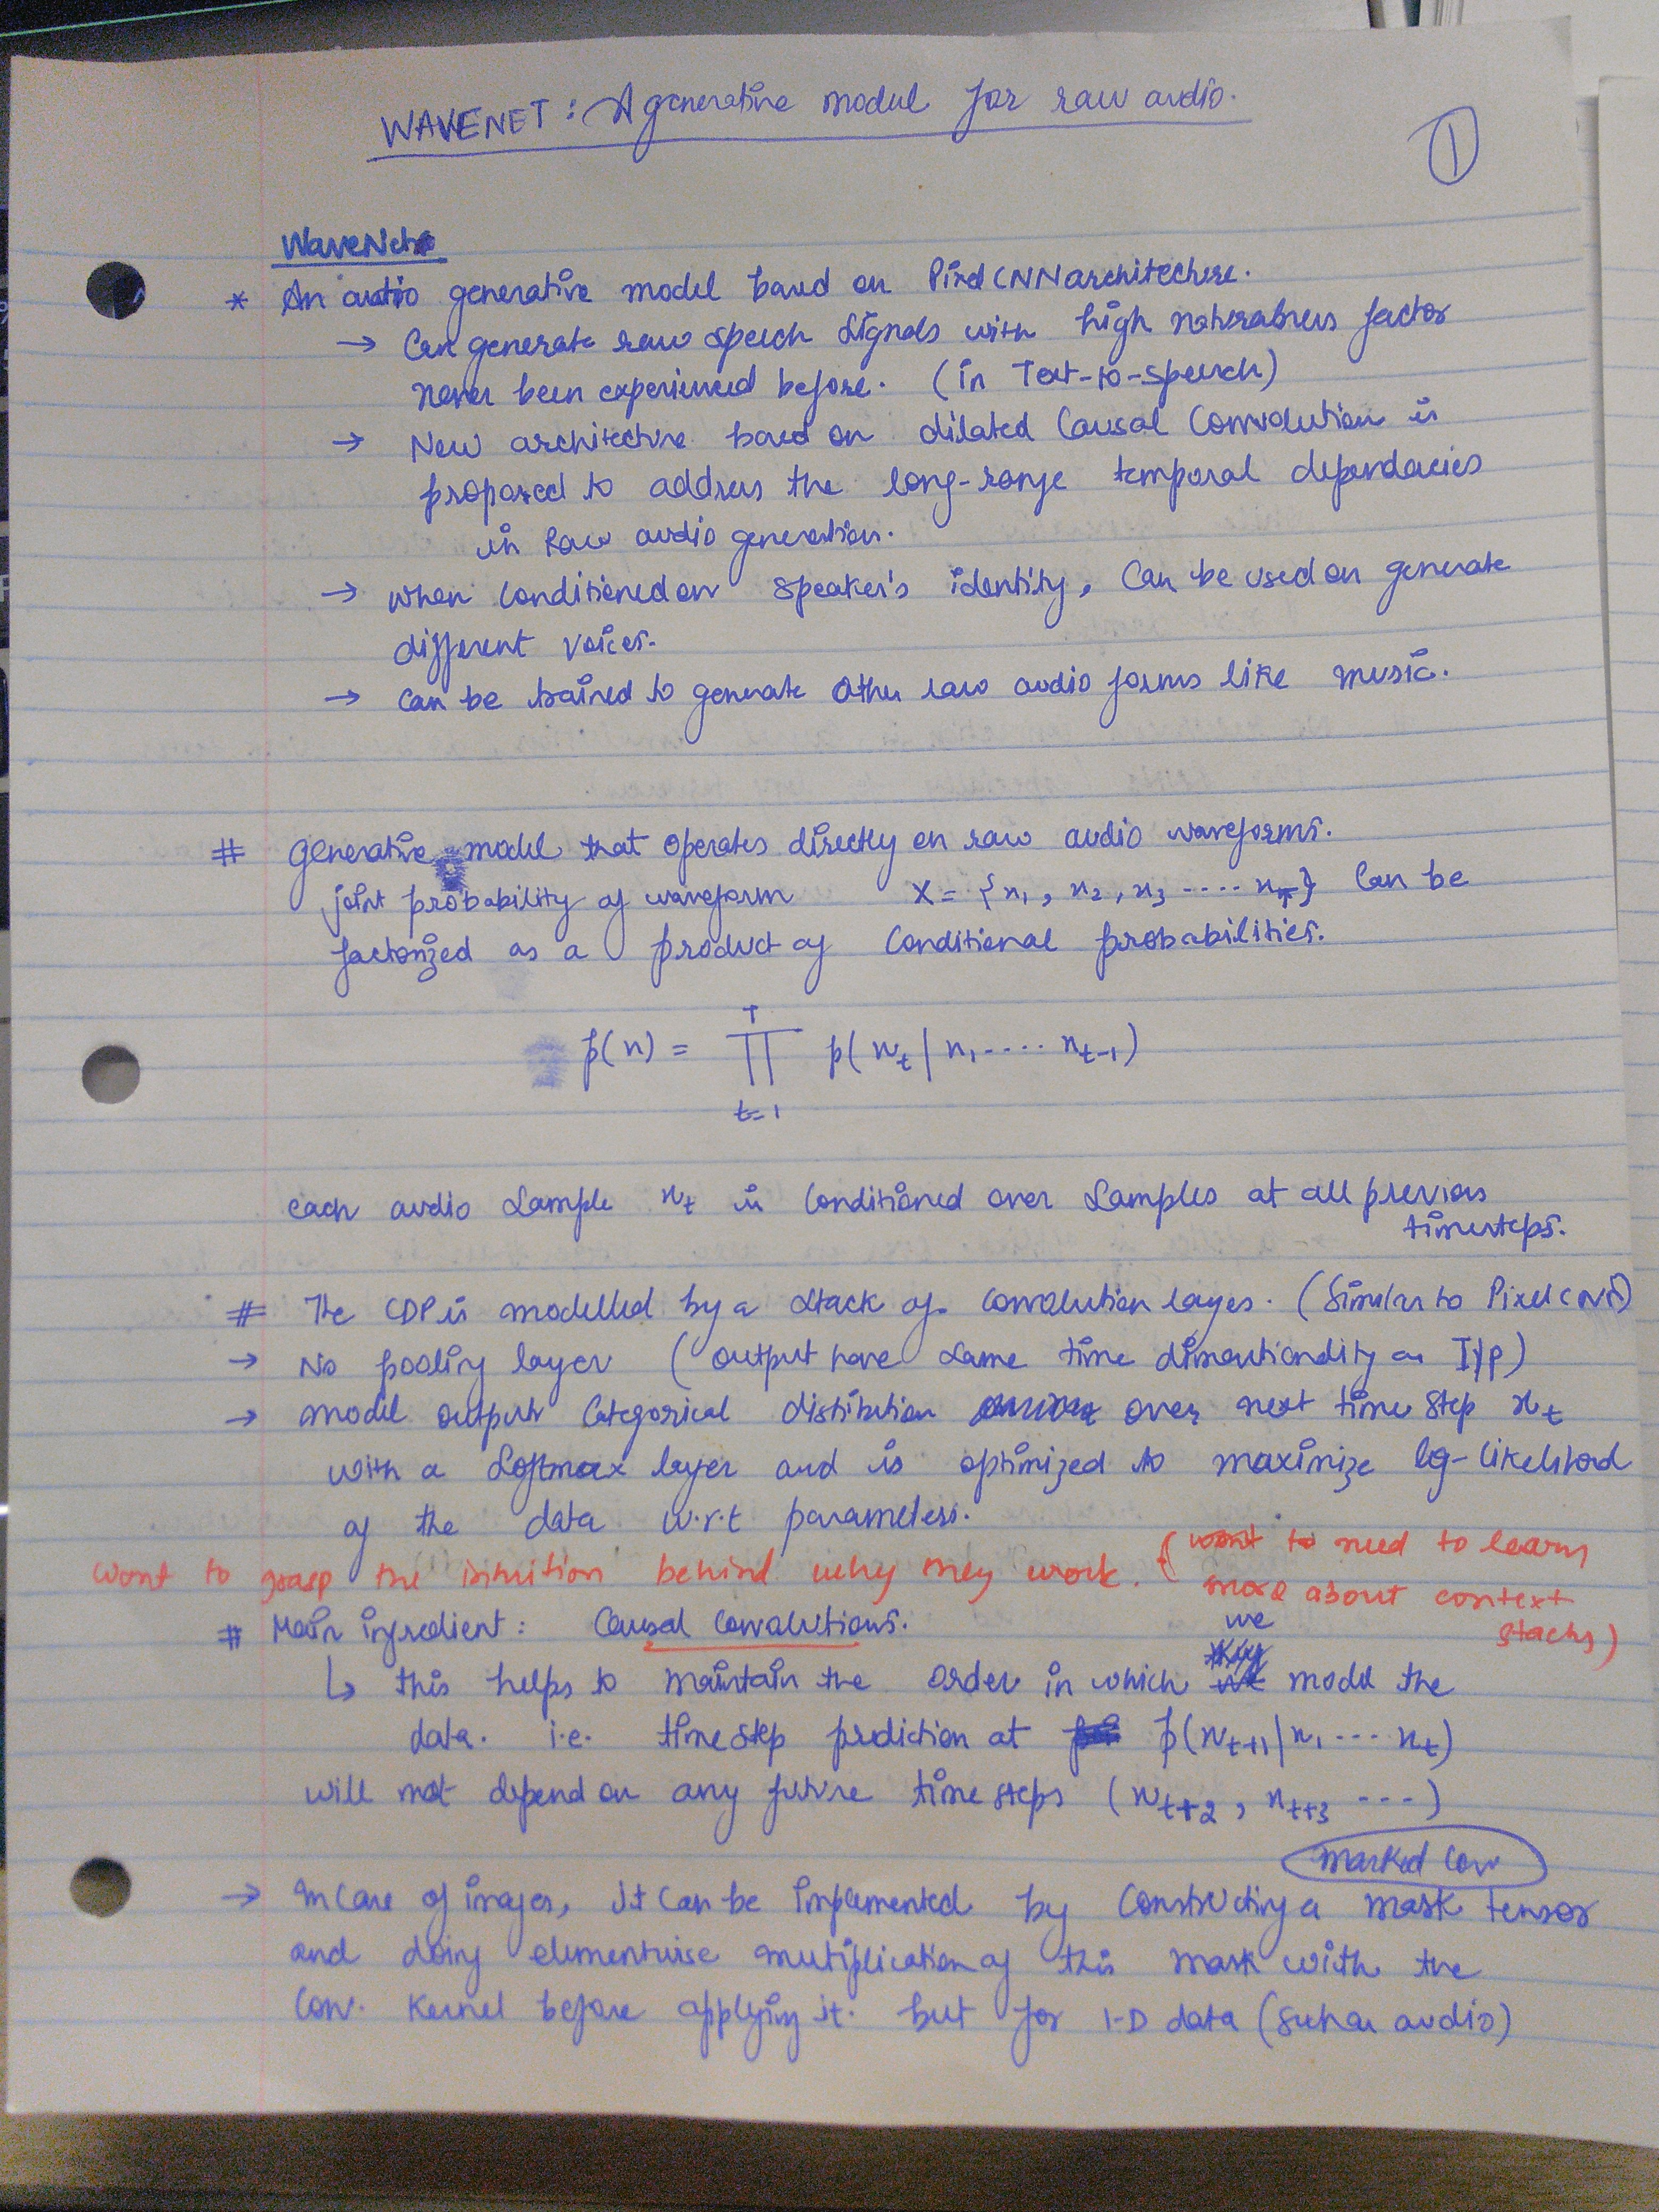 WAVENET : A generative model for raw audio.
1
WaveNet
* An audio generative model based on PixelCNN architecture.
→ Can generate raw speech signals with high naturalness factor
never been experienced before. (in Text-to-speech)
→ New architecture based on dilated causal convolution is
proposed to address the long-range temporal dependacies
in Raw audio generation.
→ when conditioned on speaker's identity, can be used on generate
different voices.
→ can be trained to generate other raw audio forms like music.
# generative model that operates directly on raw audio waveforms.
joint probability of waveform X = {x₁, x₂, x₃ ---- x_T} can be
factorized as a product of conditional probabilities.
p(x) = ∏ p(x_t | x₁ ---- x_{t-1})
T
t=1
each audio sample x_t is conditioned over samples at all previous
timesteps.
# The CDP is modelled by a stack of convolution layers. (Similar to PixelCNN)
→ No pooling layer (output have same time dimentionality as I/p)
→ model output categorical distribution over next time step x_t
with a softmax layer and is optimized to maximize log-likelihood
of the data w.r.t parameters.
want to grasp the intuition behind why they work. (want to need to learn
more about context
stacks)
# Main ingredient: Causal Convolutions.
we
↳ this helps to maintain the order in which model the
data. i.e. timestep prediction at p(x_{t+1} | x₁ --- x_t)
will not depend on any future time steps (x_{t+2}, x_{t+3} ---)
masked conv
→ In case of images, it can be implemented by constructing a mask tensor
and doing elementwise multiplication of this mask with the
conv. kernel before applying it. but for 1-D data (such as audio)